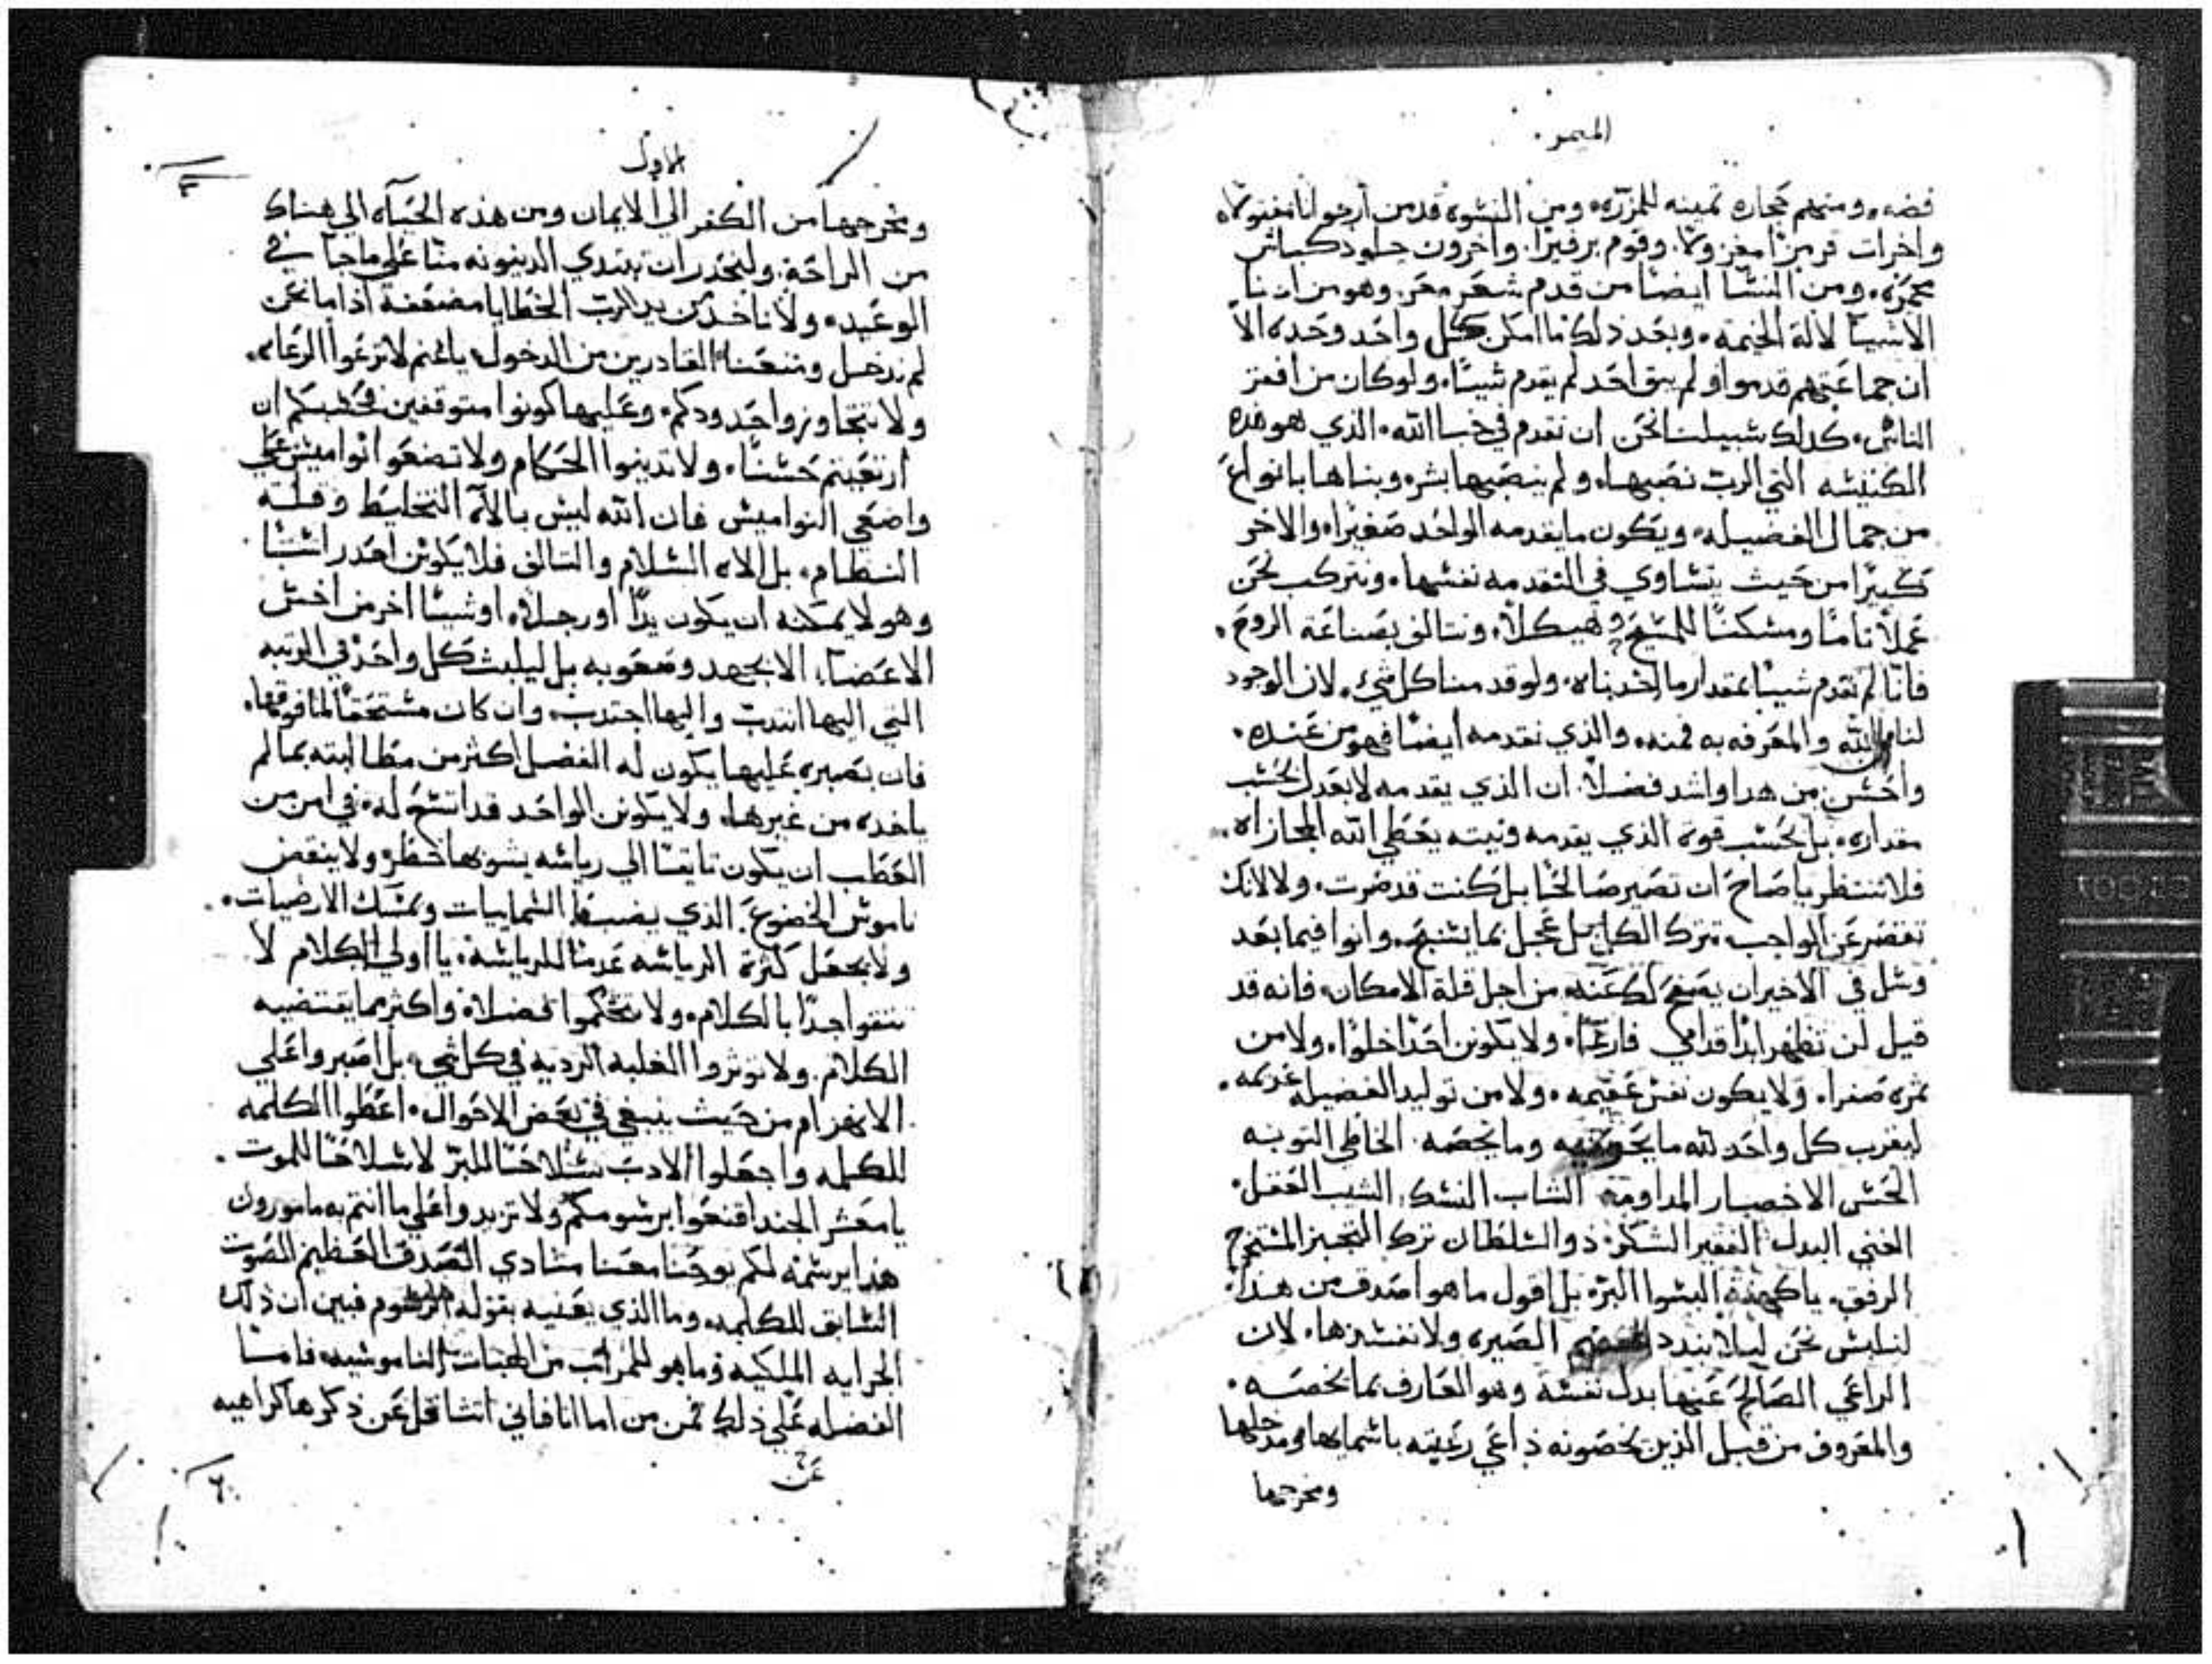 الميمر
فضه. ومنهم حجاره تمينه للمزرّه. ومن النشوه قدمن أرجوانا مفتولاً
واخرات قرمزًا مغزولاً. وقوم برفيرًا. واخرون جلود كباش
محمرّه. ومن النشا ايضًا من قدم شعَر معَز. وهو من ادنا
الاشيا لالة الخيمه. وبعَد ذلك ما امكن كل واحَد وحَده الا
ان جماعَتهم قدموا ولم يبق احَد لم يقدم شيًا. ولو كان من افقر
الناش. كدلك شبيلنا نحَن ان نقدم في خبا الله. الذي هو هده
الكنيشه التي الرب نصَبها. ولم ينصَبها بشر. وبناها بانواعَ
من جمال الفضيله. ويكون ما يقدمه الواحَد صَغيرًا. والاخر
كبيرًا من حَيث يتشاوي في التقدمه نفشها. ونتركب نحَن
عَملاً تامًا ومشكنًا للمشيحَ وهيكلاً. ونتالف بصَناعَة الروحَ.
فانّا لم نقدم شيًا بمقدار ما اخدناه. ولو قدمنا كل شي. لان الوجود
لنا من الله والمعَرفه به فمنه. والذي نقدمه أيضًا فهو من عَنده.
واحَشن من هدا واشد فضلاً. ان الذي يقدمه لا بقدل بحَشب
مقداره. بل بحَشب قوة الذي يقدمه ونيته يعَطي الله المجازاه.
فلا تنتظر يا صَاحَ ان تصَير صَالحًا بل كنت قد صرت. ولا لانك
تقصَر عَن الواجب تترك الكل بل عَجل بما يشنحَ. وانوا فيما بعَد
وشل في الاخير ان يصَفحَ لك عَنه من اجل قلة الامكان. فانه قد
قيل لن تظهر ابدًا قدامي فارغًا. ولا يكونن احَدًا خلوًا. ولا من
ثمره صفرا. ولا يكون نفش عَقيمه. ولا من توليد الفضيله عَديمه.
ليقرب كل واحَد لله ما يحَويه وما يخصَه. الخاطي التوبه
الحَشن الاحضار المداومة الشاب النشك. الشيب العَقل.
الغني البدل. الفقير الشكر. ذو الشلطان ترك التجبر المشتخرج
الرفق. يا كهنة البشوا البرّ. بل اقول ما هو اصَدق من هدا.
لنلبش نحَن ليلا نبدد الصَيره ولا نفشدها. لان
الراعَي الصَالحَ عَنها بدل نفشة وهو العَارف بما يخصَه.
والمعَروف من قبل الذين يخصَونه داعَي رعَيته باشمايها ومدخلها
ومخرجها
الاول
ومخرجها من الكفر الي الايمان ومن هذه الحَياه الي هناك
من الراحَة. ولنحَدر ان تبتدي الدينونه منّا عَلي ما جا في
الوعَيد. ولا ناخد من يد الرب الخطايا مضعَفه اذا ما نحَن
لم ندخل ومنعَنا القادرين من الدخول. يا غنم لا ترعَوا الرعَاه.
ولا تتجاوزوا حَدودكم. وعَليها كونوا متوقفين. فحَشبكم ان
ارتعَيتم حَشنًا. ولا تدينوا الحَكام ولا تضعَوا نواميش عَلي
واضعَي النواميش فان الله ليش بالاه التخليط وقلة
النظام. بل الاه الشلام والتالف فلا يكونن احَد راشًا
وهو لا يمكنه ان يكون يدًا او رجلاً. او شيًا اخر من اخش
الاعَضا. الا بجهد وصَعَوبه بل ليلبث كل واحَد في الرتبه
التي اليها انتدب واليها اجتدب. وان كان مشتحَقًا لما فوقها.
فان بصَبره عَليها يكون له الفضل اكثر من مطالبته بما لم
ياخده من غيرها. ولا يكونن الواحَد قد اتشعَ له. في امن من
العَطب ان يكون تايقًا الي رياشه يشوبها خطر. ولا ينقض
ناموش الخضوعَ. الذي يضبط الشماييات ويمشك الارضيات.
ولا يجعَل كثرة الرياشه عَدمًا للرياشة. يا اولي الكلام لا
تثقوا جدًا بالكلام. ولا تتحَكموا فضلاً. واكثر مما يقتضيه
الكلام. ولا توثروا الغلبه الرديه في كل شي. بل اصَبروا عَلي
الانهزام من حَيث ينبغي في بعَض الاحَوال. اعَطوا الكلمه
للكلمه واجعَلوا الادب شلاحًا للبرّ لا شلاحًا للموت.
يا معَشر الجند اقنعَوا برشومكم ولا تزيدوا عَلي ما انتم به مامورون
هذا يرشمه لكم يوحَنا معَنا منادي الصَدق العَظيم الصَوت
الشابق للكلمه. وما الذي يعَنيه بقوله الرشوم فبين ان ذلك
الجرايه الملكيه وما هو للمراتب من الهبات الناموشيه. فامّا
الفضله عَلي ذلك فمن من اما انا فاني اتثاقل عَن ذكرها كراهيه
عَن